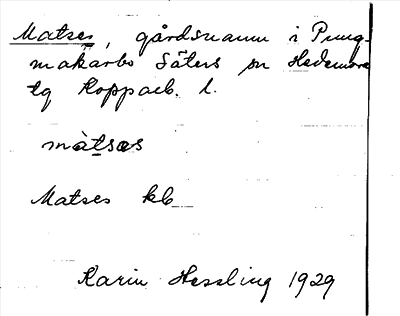 Matses, gårdsnamn i Pung-
makarbo Säters sn Hedemora
tg Kopparb. l.
màtsəs
Matses kb
Karin Hessling 1929